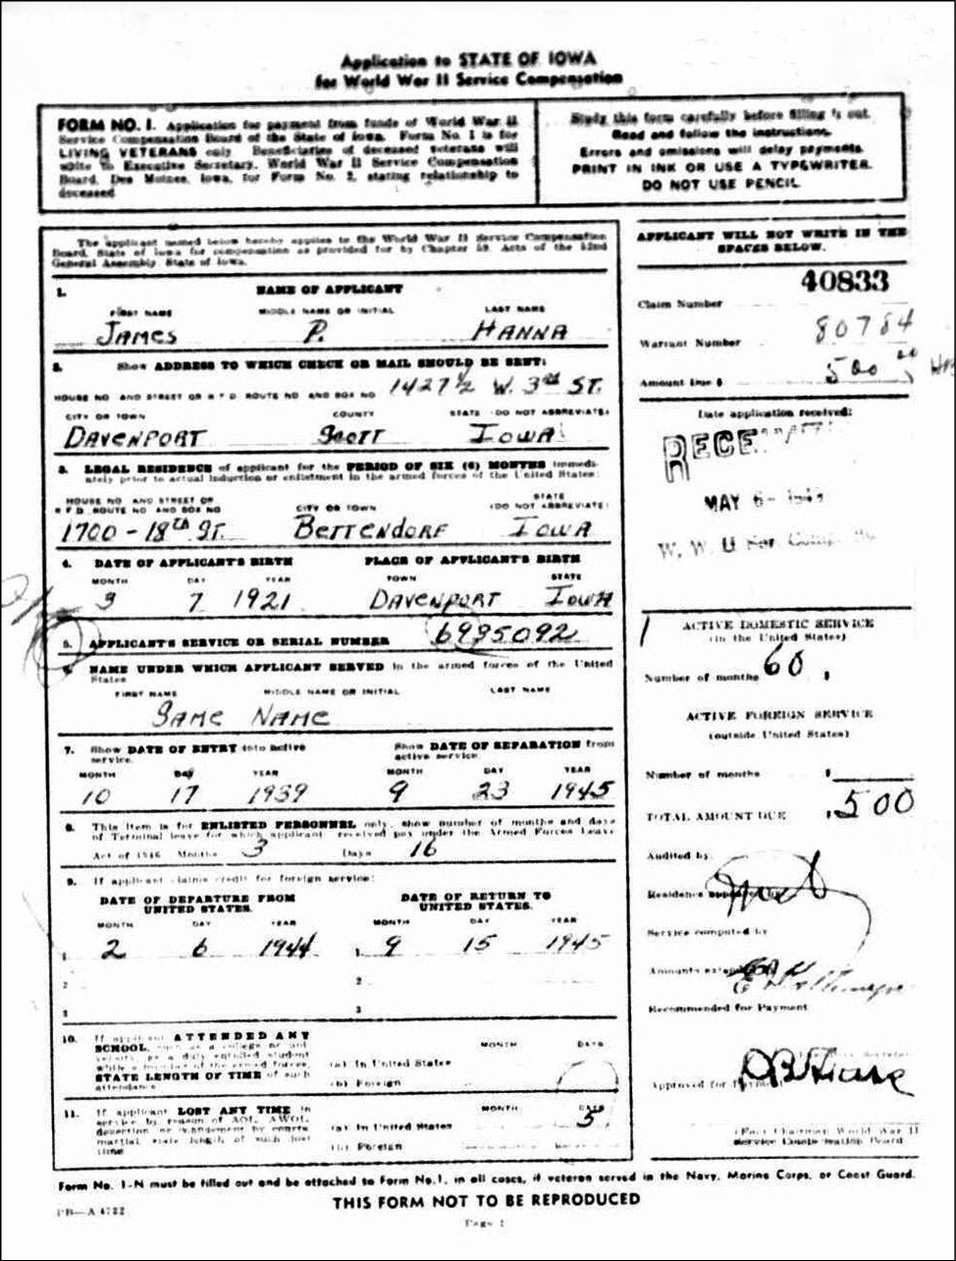 Application to STATE OF IOWA
for World War II Service Compensation
FORM NO. 1. Application for payment from funds of World War II
Service Compensation Board of the State of Iowa. Form No. 1 is for
LIVING VETERANS only. Beneficiaries of deceased veterans will
write to Executive Secretary, World War II Service Compensation
Board, Des Moines, Iowa, for Form No. 2, stating relationship to
deceased.
Study this form carefully before filling it out.
Read and follow the instructions.
Errors and omissions will delay payments.
PRINT IN INK OR USE A TYPEWRITER.
DO NOT USE PENCIL.
The applicant named below hereby applies to the World War II Service Compensation
Board, State of Iowa for compensation as provided for by Chapter 59, Acts of the 52nd
General Assembly, State of Iowa.
1. NAME OF APPLICANT
FIRST NAME MIDDLE NAME OR INITIAL LAST NAME
JAMES P. HANNA
2. Show ADDRESS TO WHICH CHECK OR MAIL SHOULD BE SENT:
HOUSE NO. AND STREET OR R.F.D. ROUTE NO. AND BOX NO. 1427 1/2 W. 3rd ST.
CITY OR TOWN COUNTY STATE (DO NOT ABBREVIATE)
DAVENPORT SCOTT IOWA
3. LEGAL RESIDENCE of applicant for the PERIOD OF SIX (6) MONTHS immedi-
ately prior to actual induction or enlistment in the armed forces of the United States:
HOUSE NO. AND STREET OR
R.F.D. ROUTE NO. AND BOX NO. CITY OR TOWN STATE (DO NOT ABBREVIATE)
1700 - 18TH ST. BETTENDORF IOWA
4. DATE OF APPLICANT'S BIRTH PLACE OF APPLICANT'S BIRTH
MONTH DAY YEAR TOWN STATE
3 7 1921 DAVENPORT IOWA
5. APPLICANT'S SERVICE OR SERIAL NUMBER 6935092
6. NAME UNDER WHICH APPLICANT SERVED in the armed forces of the United
States
FIRST NAME MIDDLE NAME OR INITIAL LAST NAME
SAME NAME
7. Show DATE OF ENTRY into active
service. Show DATE OF SEPARATION from
active service.
MONTH DAY YEAR MONTH DAY YEAR
10 17 1939 9 23 1945
8. This item is for ENLISTED PERSONNEL only, show number of months and days
of Terminal leave for which applicant received pay under the Armed Forces Leave
Act of 1946 Months 3 Days 16
9. If applicant claims credit for foreign service:
DATE OF DEPARTURE FROM
UNITED STATES. DATE OF RETURN TO
UNITED STATES.
MONTH DAY YEAR MONTH DAY YEAR
1 2 6 1944 1 9 15 1945
2 2
3 3
10. If applicant ATTENDED ANY
SCHOOL, such as a college or uni-
versity, as a duly enrolled student
while a member of the armed forces,
STATE LENGTH OF TIME of such
attendance
MONTH DAYS
(a) In United States
(b) Foreign
11. If applicant LOST ANY TIME in
service by reason of AOL, AWOL,
desertion or confinement by courts
martial state length of such lost
time
MONTH DAYS
(a) In United States 5
(b) Foreign
APPLICANT WILL NOT WRITE IN THE
SPACES BELOW.
40833
Claim Number
Warrant Number 80784
Amount Due $ 500.00
Date application received:
RECE
MAY 6 - 1949
W. W. II Ser. Comp.
ACTIVE DOMESTIC SERVICE
(in the United States)
Number of months 60 $
ACTIVE FOREIGN SERVICE
(outside United States)
Number of months $
TOTAL AMOUNT DUE $500
Audited by:
Residence approved by
Service computed by
Amounts extended by
Recommended for Payment
Approved for Payment
(For) Chairman World War II
Service Compensation Board
Form No. 1-N must be filled out and be attached to Form No. 1, in all cases, if veteran served in the Navy, Marine Corps, or Coast Guard.
THIS FORM NOT TO BE REPRODUCED
PB—A 4732
Page 1